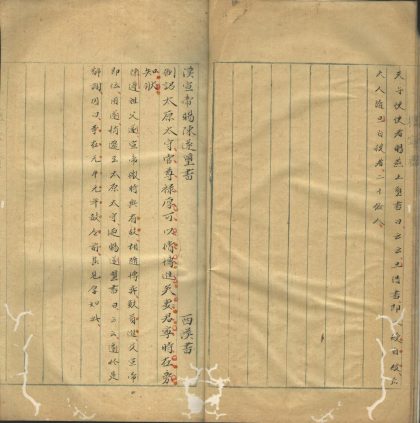 天子使使者賜燕王璽書曰云云王得書即
夫人隨旦自殺者二十餘人
漢宣帝賜陳遂璽書 西漢書
制詔太原太守官尊祿厚可以償博進矣妻君寧時在旁
知狀
陳遵祖父遂宣帝微時與有故相隨博弈數負進及宣帝
即位用遂稍遷至太原太守迺賜遂璽書曰云云遂於是
辭謝因曰事在元平元年赦令前其見厚如此